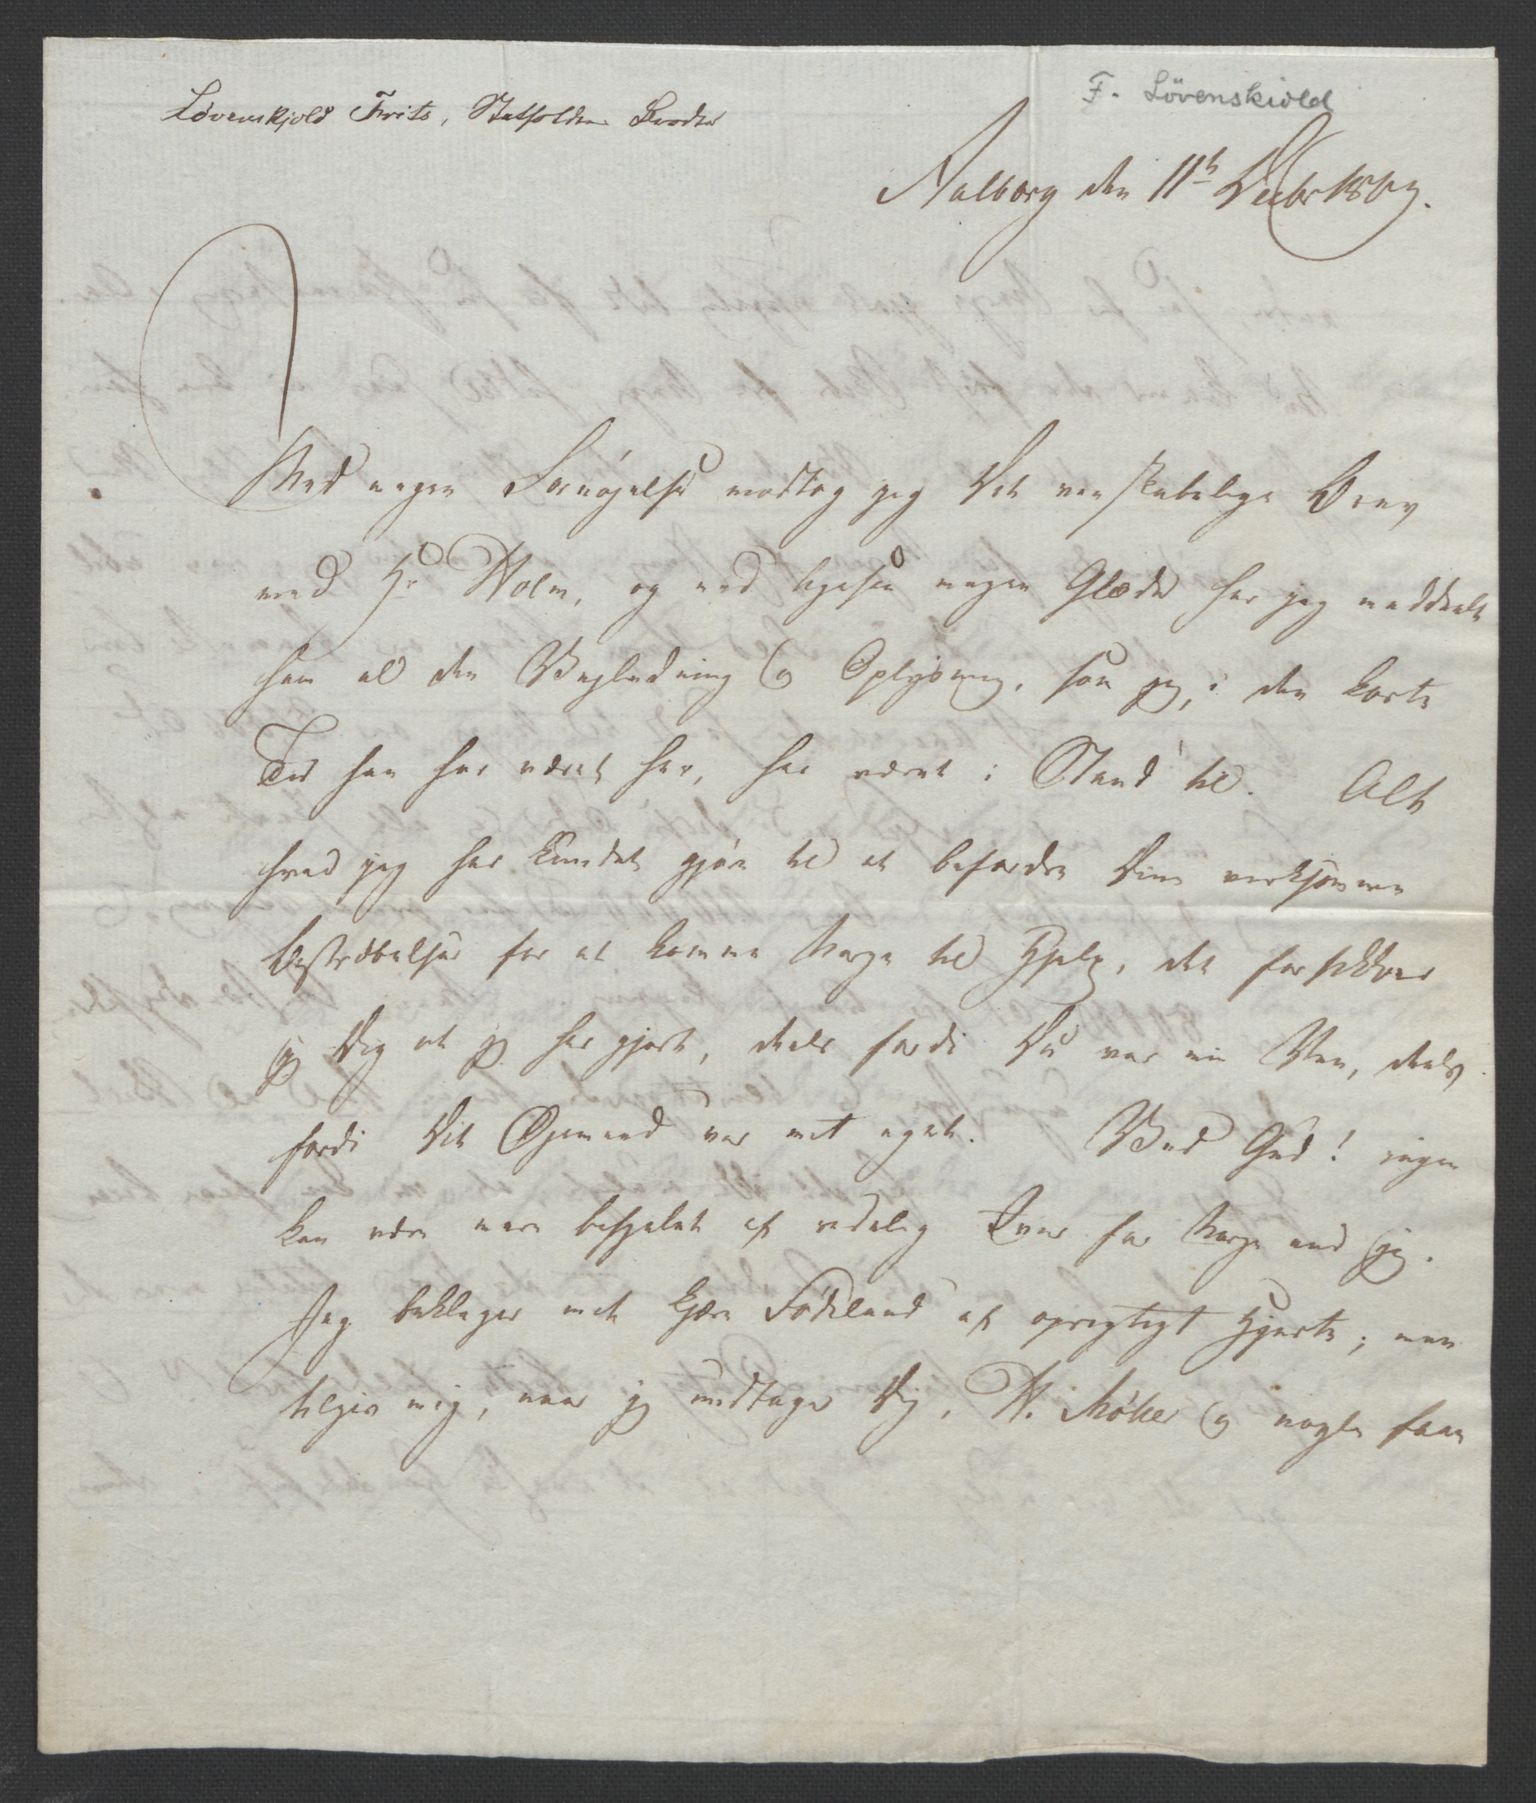 Løvenskjold Frits, Statholdern Broder
F. Lövenskiold
Aalborg den 11te Decbr 180
Med megen Fornöjelse modtog jeg Dit venskabelige Brev
med Hr Holm, og med ligesaa megen Glæde har jeg meddeelt
ham al den Vejledning og Oplysning, som jeg, i den korte
Tid han har været her, har været i Stand til. Alt
hvad jeg har kundet gjöre til at befordre Dine virksomme
Bestræbelser for at komme Norge til Hjelp, det forsikkrer
jeg Dig at jeg har gjort, deels fordi Du var min Ven, deels
fordi Dit Øjemeed var mit eget. Ved Gud! ingen
kan være mere besjælet af redelig Iver for Norge end jeg.
Jeg beklager mit kjære Födeland af oprigtigt Hjerte; men
tilgiv mig, naar jeg undtager Dig, N. Möller og nogle faae